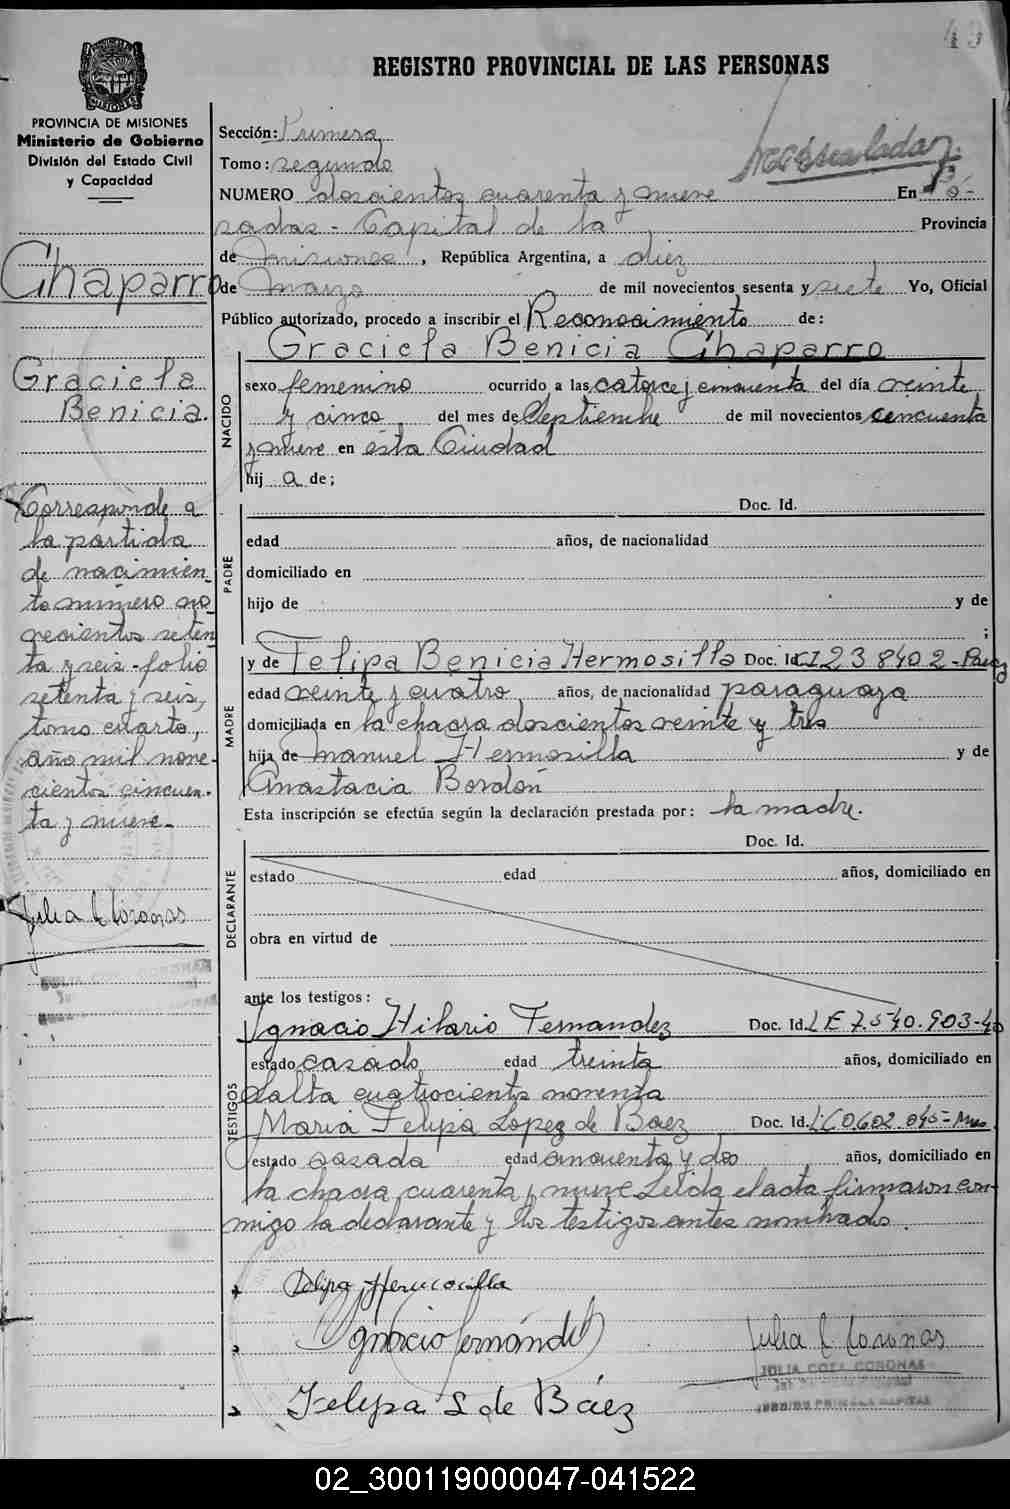 49
REGISTRO PROVINCIAL DE LAS PERSONAS
PROVINCIA DE MISIONES
Ministerio de Gobierno
División del Estado Civil
y Capacidad
Chaparro
Graciela
Benicia.
Corresponde a
la partida
de nacimien_
to número no_
vecientos seten
ta y seis - folio
setenta y seis,
tomo cuarto,
año mil nove-
cientos cincuen-
ta y nueve.-
Julia C Coronas
Sección: Primera
Tomo: segundo
NUMERO doscientos cuarenta y nueve En Po-
sadas - Capital de la Provincia
de Misiones, República Argentina, a diez
de Marzo de mil novecientos sesenta y siete Yo, Oficial
Público autorizado, procedo a inscribir el Reconocimiento de:
NACIDO
Graciela Benicia Chaparro
sexo femenino ocurrido a las catorce y cincuenta del día veinte
y cinco del mes de Septiembre de mil novecientos cincuenta
y nueve en esta Ciudad
hij a de;
PADRE
Doc. Id.
edad años, de nacionalidad
domiciliado en
hijo de y de
;
MADRE
y de Felipa Benicia Hermosilla Doc. Id. CI 238402-
edad veinte y cuatro años, de nacionalidad paraguaya
domiciliada en la chacra doscientos veinte y tres
hija de Manuel Hermosilla y de
Anastacia Bordón
Esta inscripción se efectúa según la declaración prestada por: la madre.
DECLARANTE
Doc. Id.
estado edad años, domiciliado en
obra en virtud de
ante los testigos:
TESTIGOS
Ignacio Hilario Fernandez Doc. Id. LE 7.540.903-
estado casado edad treinta años, domiciliado en
Salta cuatrocientos noventa
Maria Felipa Lopez de Baez Doc. Id. LC 0.602.045-
estado casada edad cincuenta y dos años, domiciliado en
la chacra cuarenta y nueve Leida el acta firmaron con-
migo la declarante y los testigos antes nombrados.
Felipa Hermosilla
Ignacio Fernández
Julia C Coronas
JULIA COTA CORONAS
Felipa L de Báez
02_300119000047-041522